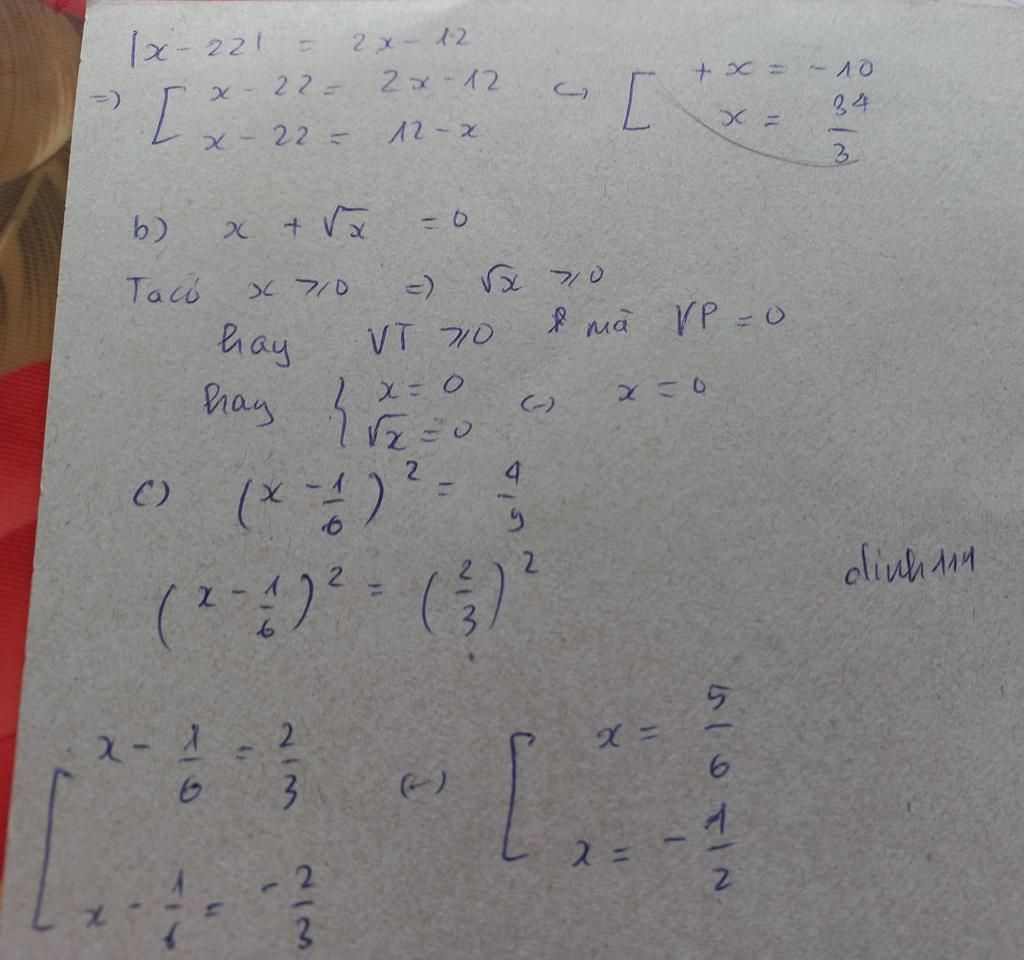 |x - 22| = 2x - 12
=) [ x - 22 = 2x - 12 (-) [ + x = -10
x - 22 = 12 - x x = 34/3
b) x + √x = 0
Ta có x ≥ 0 =) √x ≥ 0
hay VT ≥ 0 mà VP = 0
hay { x = 0 (-) x = 0
√x = 0
c) (x - 1/6)² = 4/9
(x - 1/6)² = (2/3)²
dinh114
[ x - 1/6 = 2/3 (-) [ x = 5/6
x - 1/6 = -2/3 x = -1/2